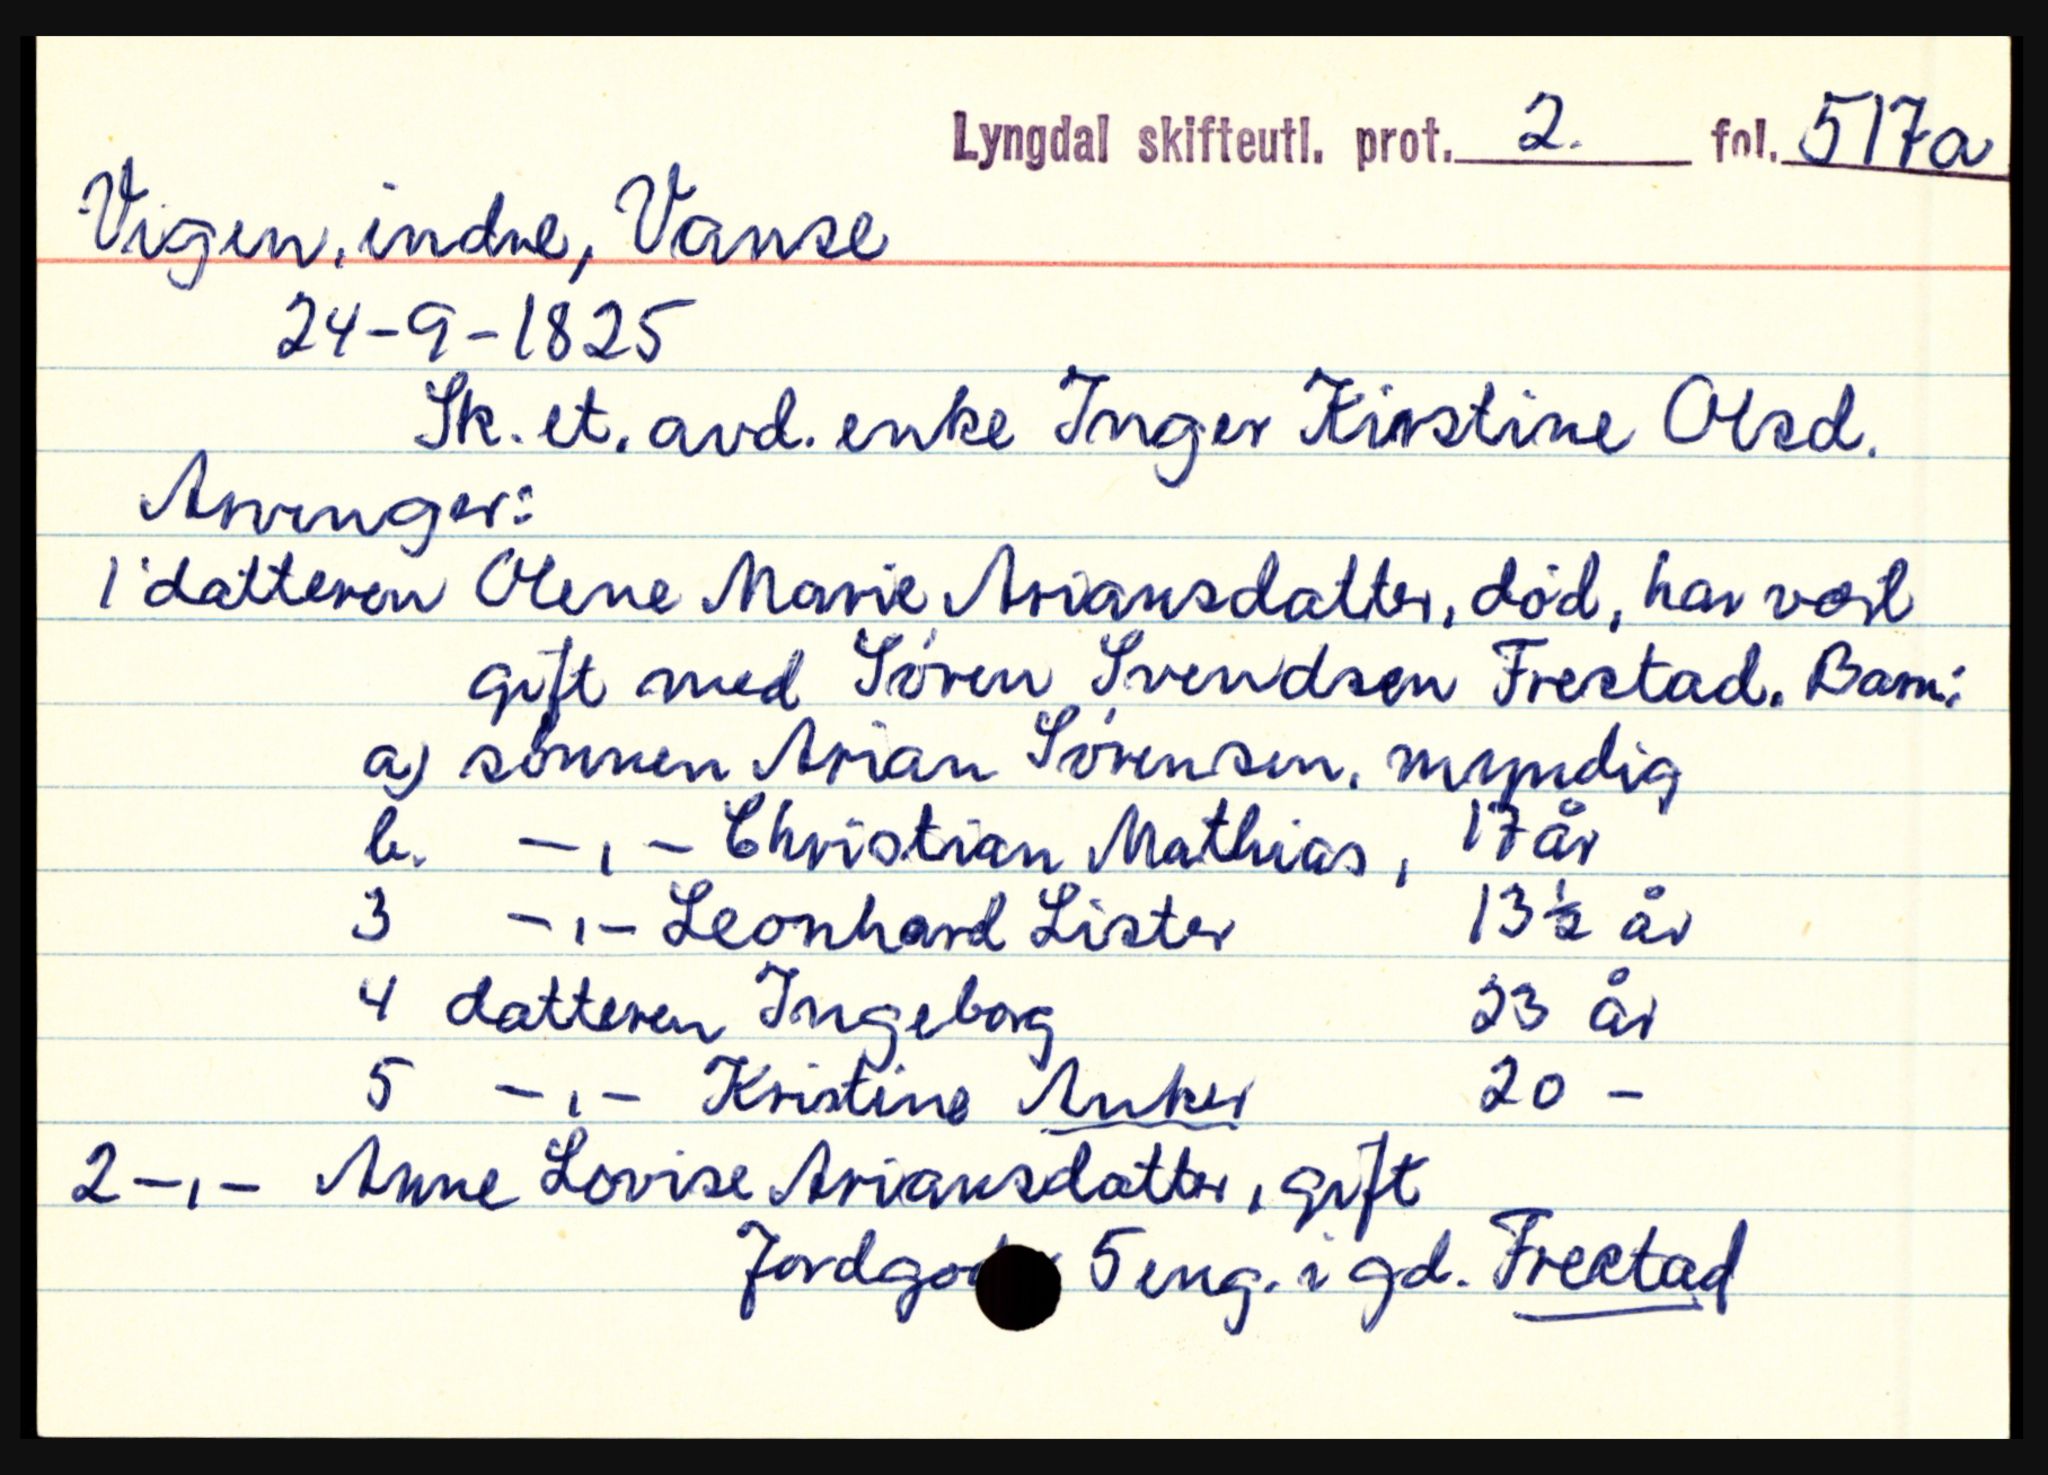 Lyngdal skifteutl. prot. 2. fol. 517a
Vigen, indre, Vanse
24-9-1825
Sk. et. avd. enke Inger Kirstine Olsd.
Arvinger:
1 datteren Olene Marie Ariansdatter, død, har vært
gift med Søren Svendsen Frestad. Barn:
a) sønnen Arian Sørensen, myndig
b. -,- Christian Mathias, 17 år
3 -,- Leonhard Lister 13½ år
4 datteren Ingeborg 23 år
5 -,- Kristine Anker 20 -
2 -,- Anne Lovise Ariansdatter, gift
5 eng. i gd. Frestad